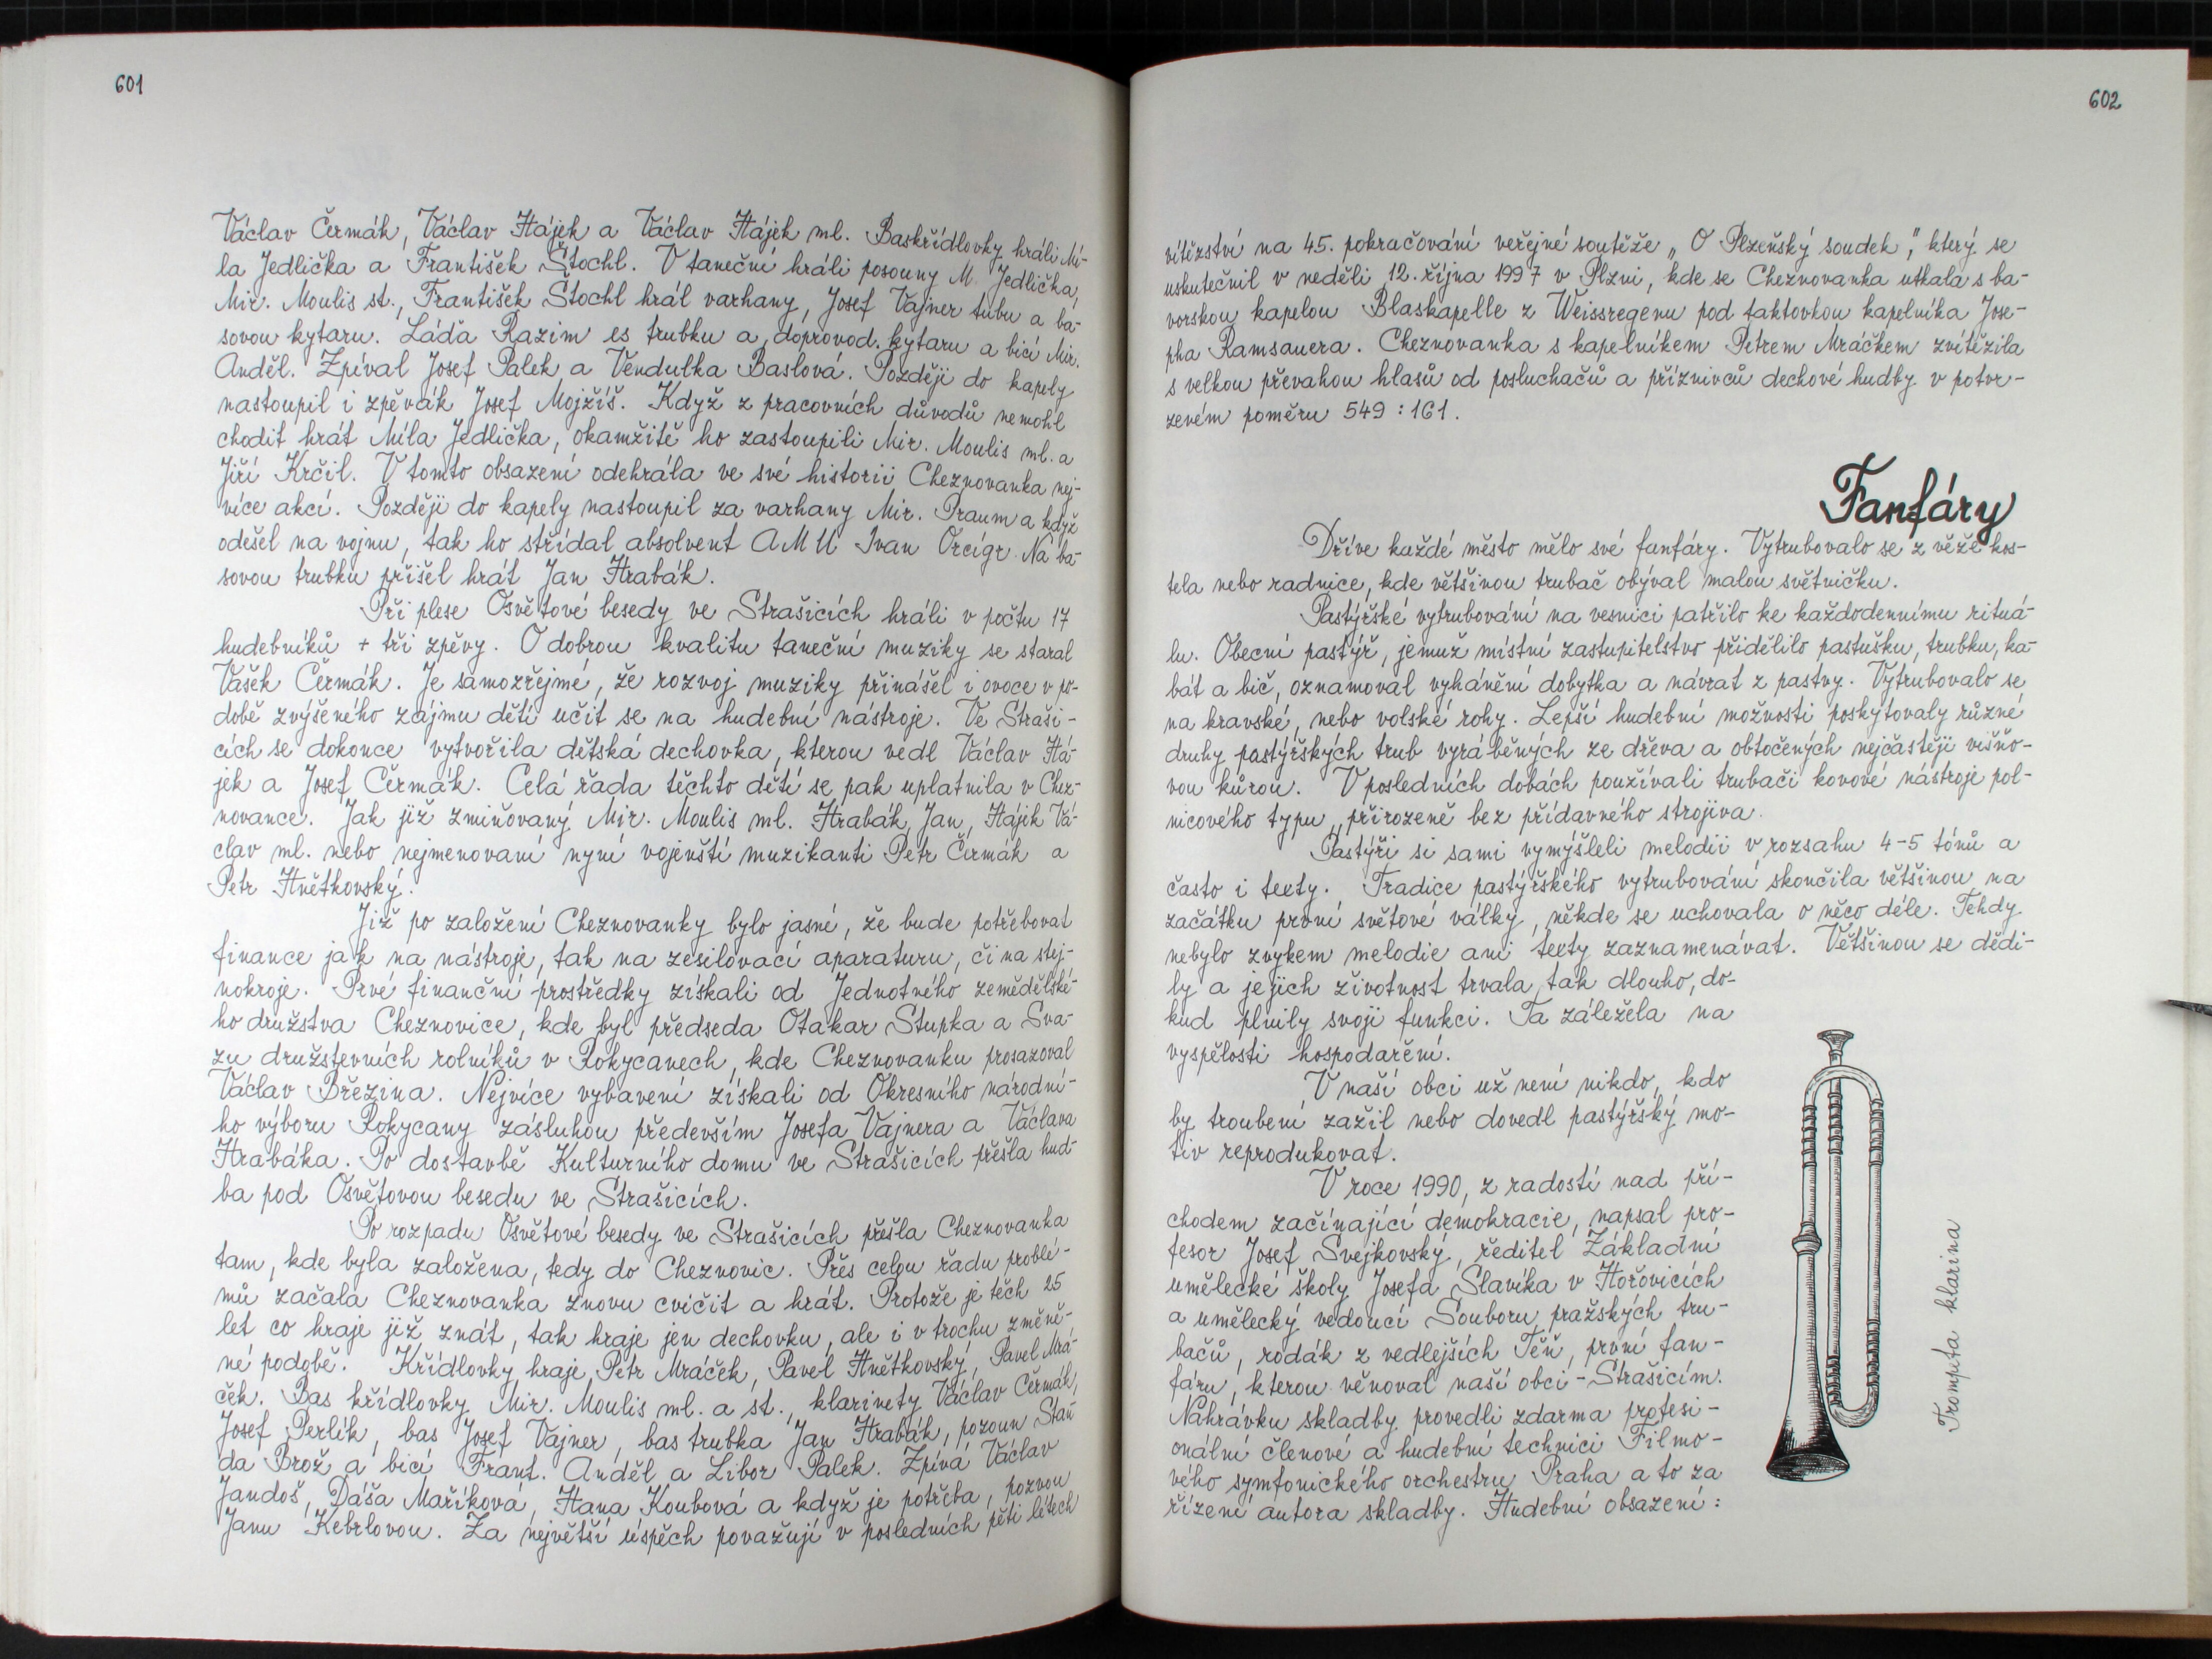 601
Václav Čermák, Václav Hájek a Václav Hájek ml. Baskřídlovky hráli Mí-
la Jedlička a František Štochl. V taneční hráli posouny M. Jedlička,
Mir. Moulis st., František Štochl hrál varhany, Josef Vajner tubu a ba-
sovou kytaru. Láďa Razim es trubku a doprovod. kytaru a bicí Mir.
Anděl. Zpíval Josef Palek a Vendulka Baslová. Později do kapely
nastoupil i zpěvák Josef Mojžíš. Když z pracovních důvodů nemohl
chodit hrát Míla Jedlička, okamžitě ho zastoupili Mir. Moulis ml. a
Jiří Krčil. V tomto obsazení odehrála ve své historii Cheznovanka nej-
více akcí. Později do kapely nastoupil za varhany Mir. Traum a když
odešel na vojnu, tak ho střídal absolvent AMU Ivan Orcígr. Na ba-
sovou trubku přišel hrát Jan Hrabák.
Při plese Osvětové besedy ve Strašicích hráli v počtu 17
hudebníků + tři zpěvy. O dobrou kvalitu taneční muziky se staral
Vašek Čermák. Je samozřejmé, že rozvoj muziky přinášel i ovoce v po-
době zvýšeného zájmu dětí učit se na hudební nástroje. Ve Straši-
cích se dokonce vytvořila dětská dechovka, kterou vedl Václav Há-
jek a Josef Čermák. Celá řada těchto dětí se pak uplatnila v Chez-
novance. Jak již zmiňovaný Mir. Moulis ml. Hrabák Jan, Hájek Vá-
clav ml. nebo nejmenovaní nyní vojenští muzikanti Petr Čermák a
Petr Hnětkovský.
Již po založení Cheznovanky bylo jasné, že bude potřebovat
finance jak na nástroje, tak na zesilovací aparaturu, či na stej-
nokroje. Prvé finanční prostředky získali od Jednotného zemědělské-
ho družstva Cheznovice, kde byl předseda Otakar Stupka a Sva-
zu družstevních rolníků v Rokycanech, kde Cheznovanku prosazoval
Václav Březina. Nejvíce vybavení získali od Okresního národní-
ho výboru Rokycany zásluhou především Josefa Vajnera a Václava
Hrabáka. Po dostavbě Kulturního domu ve Strašicích přešla hud-
ba pod Osvětovou besedu ve Strašicích.
Po rozpadu Osvětové besedy ve Strašicích přešla Cheznovanka
tam, kde byla založena, tedy do Cheznovic. Přes celou řadu problé-
mů začala Cheznovanka znovu cvičit a hrát. Protože je těch 25
let co hraje již znát, tak hraje jen dechovku, ale i v trochu změně-
né podobě. Křídlovky hraje Petr Mráček, Pavel Hnětkovský, Pavel Mrá-
ček. Bas křídlovky Mir. Moulis ml. a st., klarinety Václav Čermák,
Josef Perlík, bas Josef Vajner, bas trubka Jan Hrabák, pozoun Stan-
da Brož a bicí Frant. Anděl a Libor Palek. Zpívá Václav
Jandoš, Dáša Maříková, Hana Koubová a když je potřeba, pozvou
Janu Kebrlovou. Za největší úspěch považují v posledních pěti létech
602
vítězství na 45. pokračování veřejné soutěže „O Plzeňský soudek", který se
uskutečnil v neděli 12. října 1997 v Plzni, kde se Cheznovanka utkala s ba-
vorskou kapelou Blaskapelle z Weissregenu pod taktovkou kapelníka Jose-
pha Ramsauera. Cheznovanka s kapelníkem Petrem Mráčkem zvítězila
s velkou převahou hlasů od posluchačů a příznivců dechové hudby v potvr-
zeném poměru 549 : 161.
Fanfáry
Dříve každé město mělo své fanfáry. Vytrubovalo se z věže kos-
tela nebo radnice, kde většinou trubač obýval malou světničku.
Pastýřské vytrubování na vesnici patřilo ke každodennímu rituá-
lu. Obecní pastýř, jemuž místní zastupitelstvo přidělilo pastušku, trubku, ka-
bát a bič, oznamoval vyhánění dobytka a návrat z pastvy. Vytrubovalo se
na kravské, nebo volské rohy. Lepší hudební možnosti poskytovaly různé
druhy pastýřských trub vyráběných ze dřeva a obtočených nejčastěji višňo-
vou kůrou. V posledních dobách používali trubači kovové nástroje pol-
nicového typu, přirozeně bez přídavného strojiva.
Pastýři si sami vymýšleli melodii v rozsahu 4-5 tónů a
často i texty. Tradice pastýřského vytrubování skončila většinou na
začátku první světové války, někde se uchovala o něco déle. Tehdy
nebylo zvykem melodie ani texty zaznamenávat. Většinou se dědi-
ly a jejich životnost trvala tak dlouho, do-
kud plnily svoji funkci. Ta záležela na
vyspělosti hospodaření.
V naší obci už není nikdo, kdo
by troubení zažil nebo dovedl pastýřský mo-
tiv reprodukovat.
V roce 1990, z radosti nad pří-
chodem začínající demokracie, napsal pro-
fesor Josef Svejkovský, ředitel Základní
umělecké školy Josefa Slavíka v Hořovicích
a umělecký vedoucí Souboru pražských tru-
bačů, rodák z vedlejších Těň, první fan-
fáru, kterou věnoval naší obci - Strašicím.
Nahrávku skladby provedli zdarma profesi-
onální členové a hudební technici Filmo-
vého symfonického orchestru Praha a to za
řízení autora skladby. Hudební obsazení:
Trompita klarina